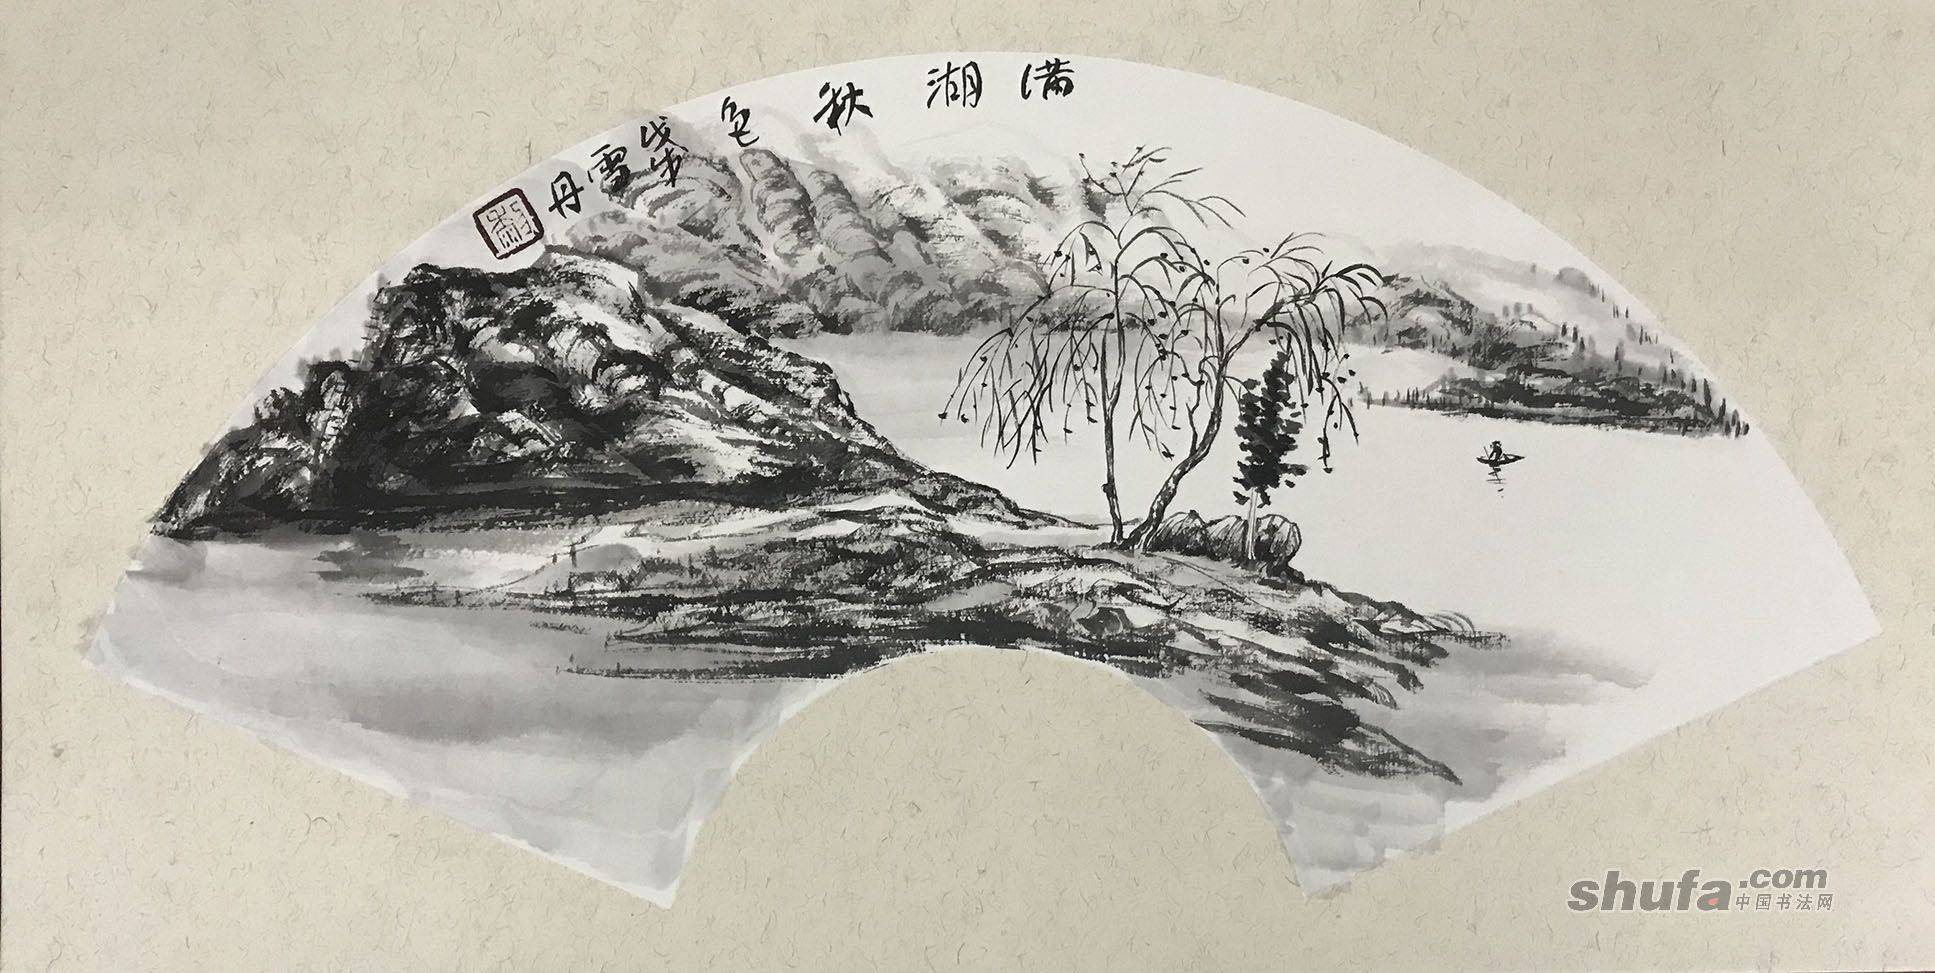 满湖秋色
戊戌
雪丹
shufa.com
中国书法网